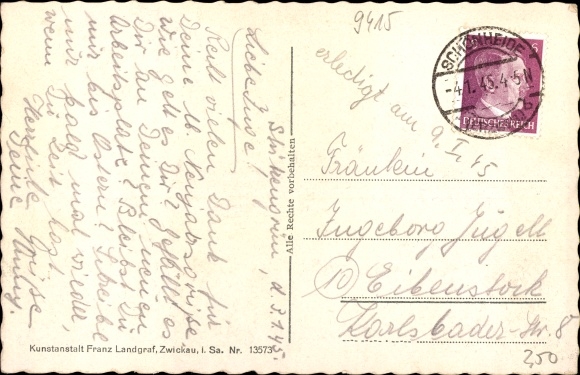 9415
SCHÖNHEIDE
-4.1.45.4-5N
DEUTSCHES REICH
6
erledigt am 9.I.45
Schützengrün, d. 3.1.45.
Liebe Inge!
Recht vielen Dank für
Deine lb. Neujahrsgrüße.
Wie geht es Dir? Gefällt es
Dir an Deinem neuen
Arbeitsplatz? Bleibst Du
nur bis Ostern? Schreibe
mir bald mal wieder,
wenn Du Zeit hast.
Herzliche Grüße
Deine
Alle Rechte vorbehalten
Fräulein
Ingeborg Jugelt
(10) Eibenstock
Karlsbader-Str. 8
250
Kunstanstalt Franz Landgraf, Zwickau, i. Sa. Nr. 13573